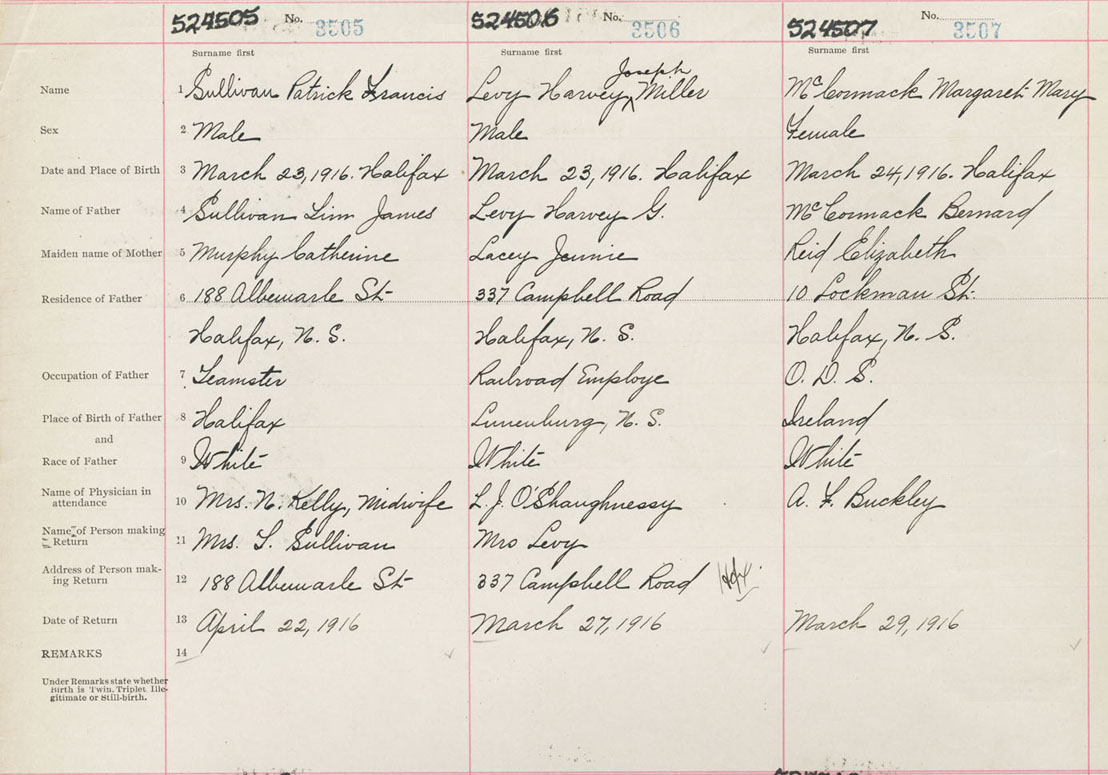 524505 No. 3505 524506 No. 3506 524507 No. 3507
Surname first Surname first Surname first
Joseph
Name 1 Sullivan Patrick Francis Levy Harvey ^ Miller McCormack Margaret Mary
Sex 2 Male Male Female
Date and Place of Birth 3 March 23, 1916. Halifax March 23, 1916. Halifax March 24, 1916. Halifax
Name of Father 4 Sullivan James Levy Harvey G. McCormack Bernard
Maiden name of Mother 5 Murphy Catherine Lacey Jennie Reid Elizabeth
Residence of Father 6 188 Albemarle St 337 Campbell Road 10 Lockman St.
Halifax, N. S. Halifax, N. S. Halifax, N. S.
Occupation of Father 7 Teamster Railroad Employe O. D. S.
Place of Birth of Father 8 Halifax Lunenburg, N. S. Ireland
and
Race of Father 9 White White White
Name of Physician in
attendance 10 Mrs. N. Kelly, Midwife L. J. O'Shaughnessy A. F. Buckley
Name of Person making
" Return 11 Mrs. L. Sullivan Mrs Levy
Address of Person mak-
ing Return 12 188 Albemarle St 337 Campbell Road Hfx.
Date of Return 13 April 22, 1916 March 27, 1916 March 29, 1916
REMARKS 14
Under Remarks state whether
Birth is Twin, Triplet Ille-
gitimate or Still-birth.